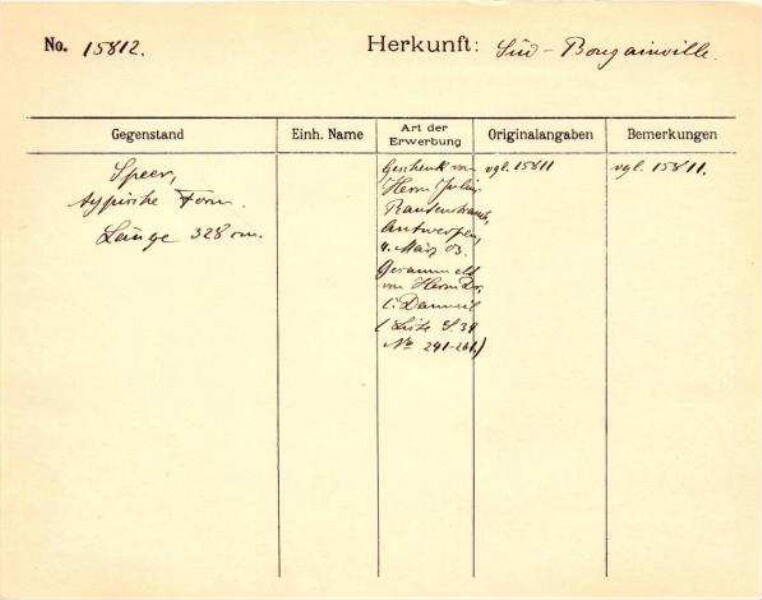 No. 15812.
Herkunft: Süd-Bougainville.
Gegenstand
Einh. Name
Art der Erwerbung
Originalangaben
Bemerkungen
Speer,
typische Form.
Länge 328 cm.
Geschenk von
Herrn
Antwerpen,
4. März 03.
Gesammelt
von Herrn Dr.
(Liste S. 34
No 241-261)
vgl. 15811
vgl. 15811.